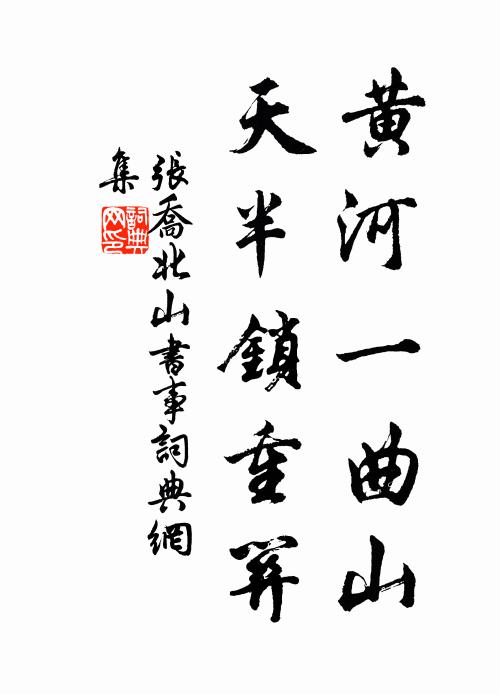 黄河一曲山
天半鎖重關
張喬北山書事詞典網
集
詞典
网印